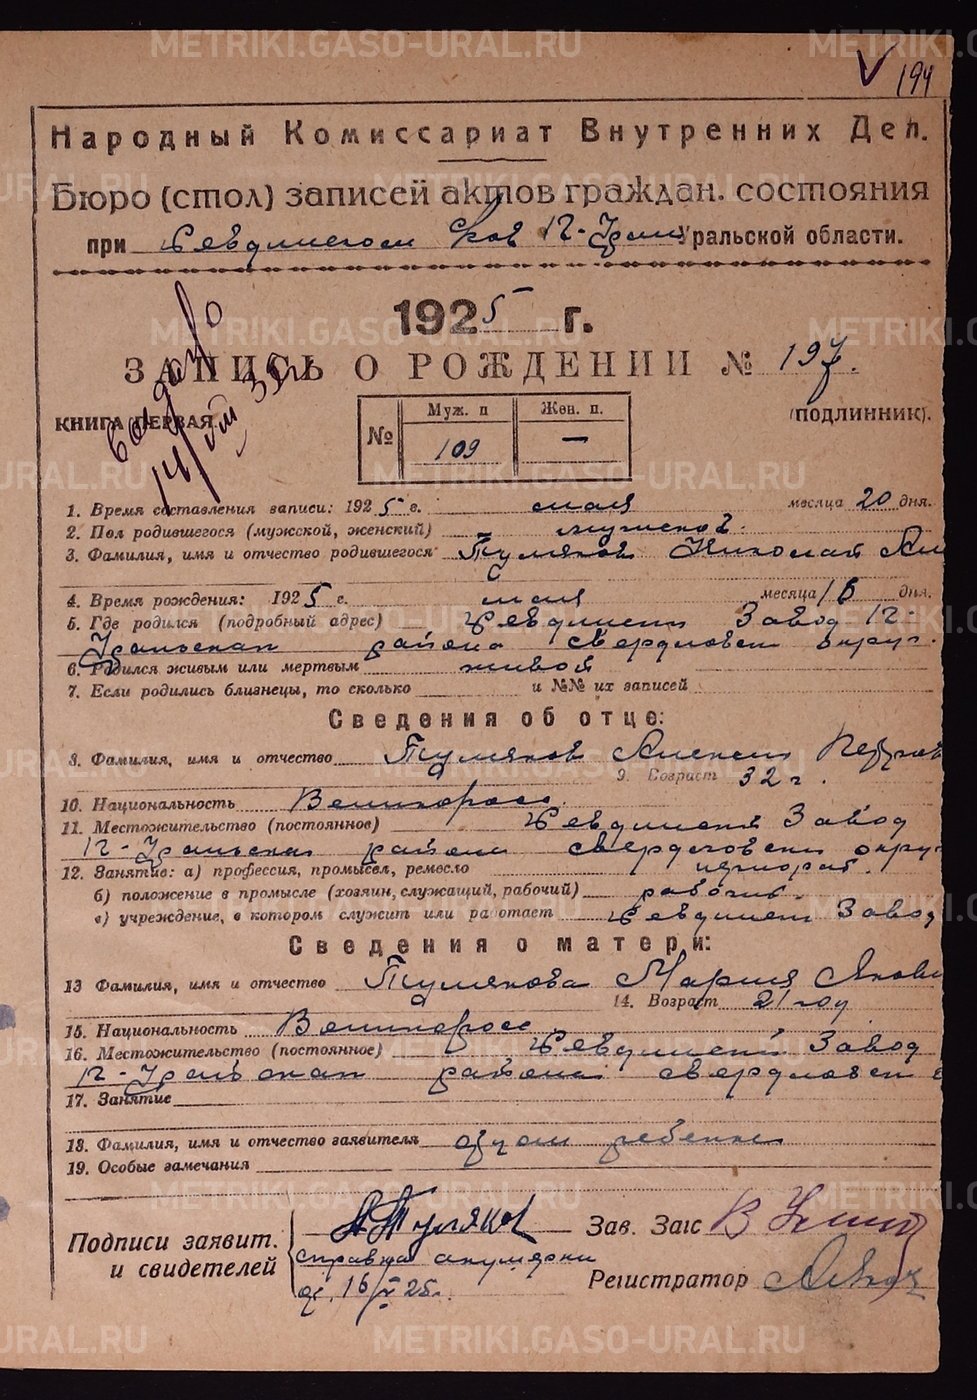 194
Народный Комиссариат Внутренних Дел.
Бюро (стол) записей актов граждан. состояния
при Уральской области.
1925 г.
ЗАПИСЬ О РОЖДЕНИИ № 197.
КНИГА ПЕРВАЯ. (ПОДЛИННИК).
№ Муж. п Жен. п.
109 —
1. Время составления записи: 1925 г. мая месяца 20 дня.
2. Пол родившегося (мужской, женский) мужской.
3. Фамилия, имя и отчество родившегося Туляков Николай Ал
4. Время рождения: 1925 г. мая месяца 16 дня.
5. Где родился (подробный адрес) Завод
района округ.
6. Родился живым или мертвым живой
7. Если родились близнецы, то сколько и №№ их записей
Сведения об отце:
8. Фамилия, имя и отчество Туляков Алексей Петров
9. Возраст 32 г.
10. Национальность Великоросс.
11. Местожительство (постоянное) Завод
района округ
12. Занятие: а) профессия, промысел, ремесло
б) положение в промысле (хозяин, служащий, рабочий) рабочий.
в) учреждение, в котором служит или работает Завод
Сведения о матери:
13 Фамилия, имя и отчество Тулякова Мария Якови
14. Возраст 21 год
15. Национальность Великоросс
16. Местожительство (постоянное) Завод
района
17. Занятие
18. Фамилия, имя и отчество заявителя отец ребенка
19. Особые замечания
Подписи заявит. и свидетелей
А Туляков
справка акушерки
от 16/V 25 г.
Зав. Загс
Регистратор
METRIKI.GASO-URAL.RU